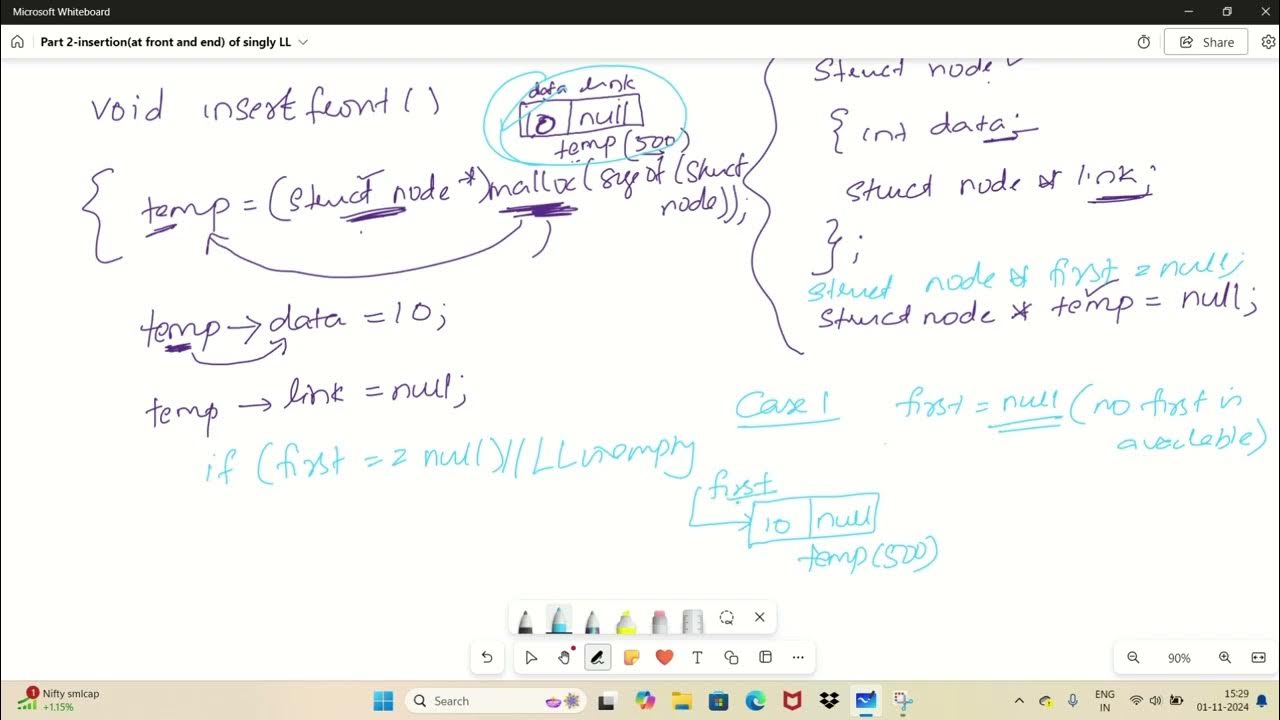 Microsoft Whiteboard
Part 2-insertion(at front and end) of singly LL
Share
void insertfront()
data link
10 null
temp (500)
{ temp = (struct node *)malloc(sizeof(struct
node));
temp → data = 10;
temp → link = null;
if (first == null)//LL is empty
struct node
{ int data;
struct node * link;
};
struct node * first = null;
struct node * temp = null;
Case 1 first = null (no first is
available)
first
10 null
temp(500)
90%
1
Nifty smlcap
+1.15%
Search
ENG
IN
15:29
01-11-2024